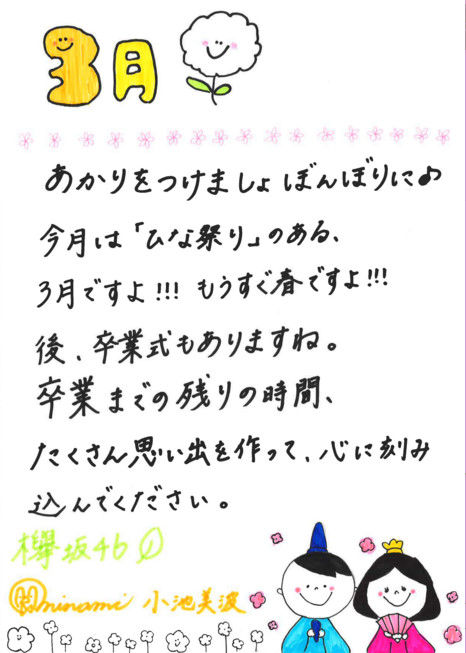 3月
あかりをつけましょ ぼんぼりに♪
今月は「ひな祭り」のある、
3月ですよ!!! もうすぐ春ですよ!!!
後、卒業式もありますね。
卒業までの残りの時間、
たくさん思い出を作って、心に刻み
込んでください。
欅坂46
minami 小池美波